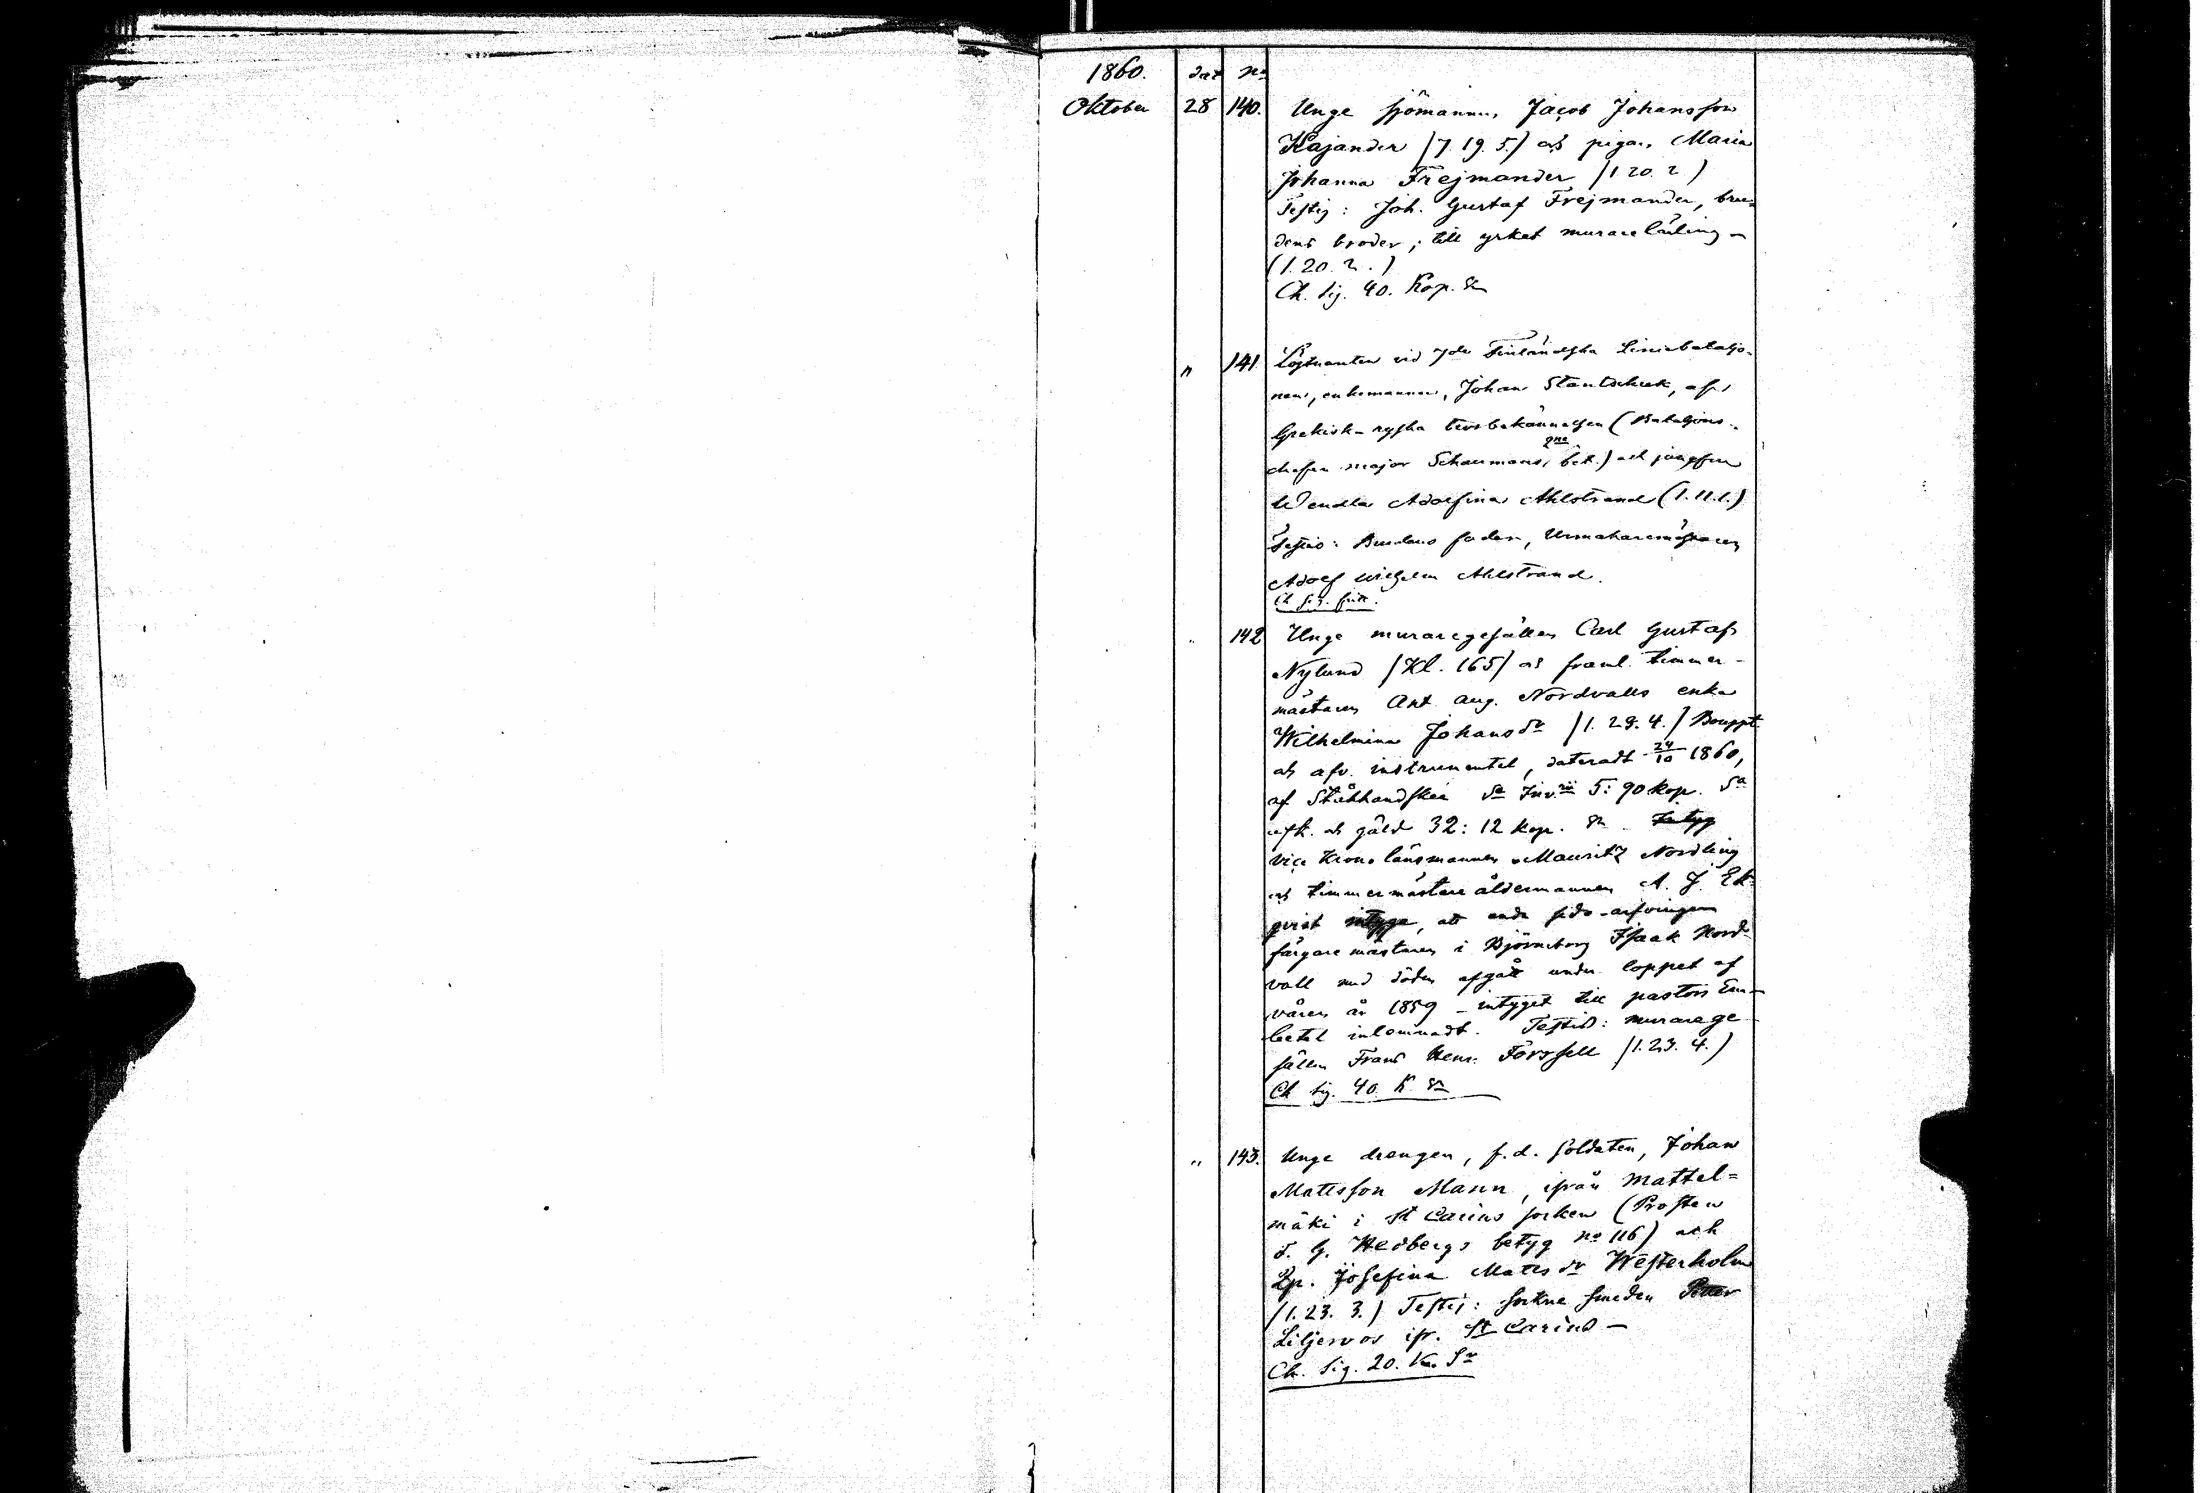 1860. dat no
Oktober 28 140. Unge sjömannen Jacob Johansson
Kajander /7.19.5./ och pigan Maria
Johanna Frejmander /1.20.2/
Testis: Joh. Gustaf Frejmander, bru-
dens broder; till yrket murarelärling —
(1.20.2.)
Ch. sig. 40. Kop. Sr
" 141. Löjtnanten vid 7de Finländska Liniebataljo-
nen, enkemannen, Johan Stantschuk, af
Grekisk-ryska trosbekännelsen (Bataljons-
chefen major Schaumans bet.) och jungfru
Wendla Adolfina Ahlstrand (1.11.1.)
Testis: Brudens fader, Urmakaremästaren
Adolf Wilhelm Ahlstrand.
Ch. sig. fritt.
" 142 Unge muraregesällen Carl Gustaf
Nylund /Kl. 165/ och framl. timmer-
mästaren Ant. Aug. Nordvalls enka
Wilhelmina Johansdr /1.29.4./ Bouppt.
och afv. instrumentet, dateradt 24/10 1860,
af Stålhandske Sa Inv:ii 5: 90 kop. Sa
och gäld 32: 12 kop. Sr. Intyg
vice Kronolänsmannen Mauritz Nordling
och timmermästareåldermannen A. J. Ek-
qvist intyga, att enda sido-arfvingen
färgaremästaren i Björneborg Isaak Nord-
vall med döden afgått under loppet af
våren år 1859 – intyget till pastors Em-
betet inlemnadt. Testis: murarege-
sällen Frans Henr. Forssell /1.23.4./
Ch sig. 40. K Sr
" 143. Unge drengen, f.d. soldaten, Johan
Mattsson Mann, ifrån Mattel=
mäki i St Carins socken (Prosten
G. Hedbergs betyg no 116) och
Pp. Josefina Mattsdr Westerholm
/1.23.3./ Testis: sockne smeden Petter
Liljeroos ifr. St Carins —
Ch. Sig. 20. K. Sr